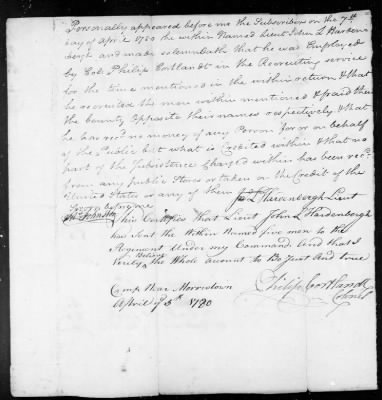 Personally appeared before me the Subscriber on the 7th
day of April 1780 the within Named Lieut John L Harden-
bergh and made solemn Oath that he was Employed
by Colo. Philip Cortlandt in the Recruiting service
for the time mentioned in the within action & that
he recruited the men within mentioned & paid them
the bounty opposite their names respectively & that
he has recd. no money of any Person for or on behalf
of the Public but what is Credited within & that no
part of the Subsistence Charged within has been recd.
from any public Stores or taken on the Credit of the
United States or any of them
Jno. L. Hardenbergh Lieut
Sworn before me
Johnston
This Certifies that Lieut John L Hardenbergh
has Sent the Within Named five men to the
Regiment Under my Command And that I
Verily Believe the Whole account to Be Just And true
Camp Near Morristown
April ye 5th 1780
Philip Cortlandt
Colonel